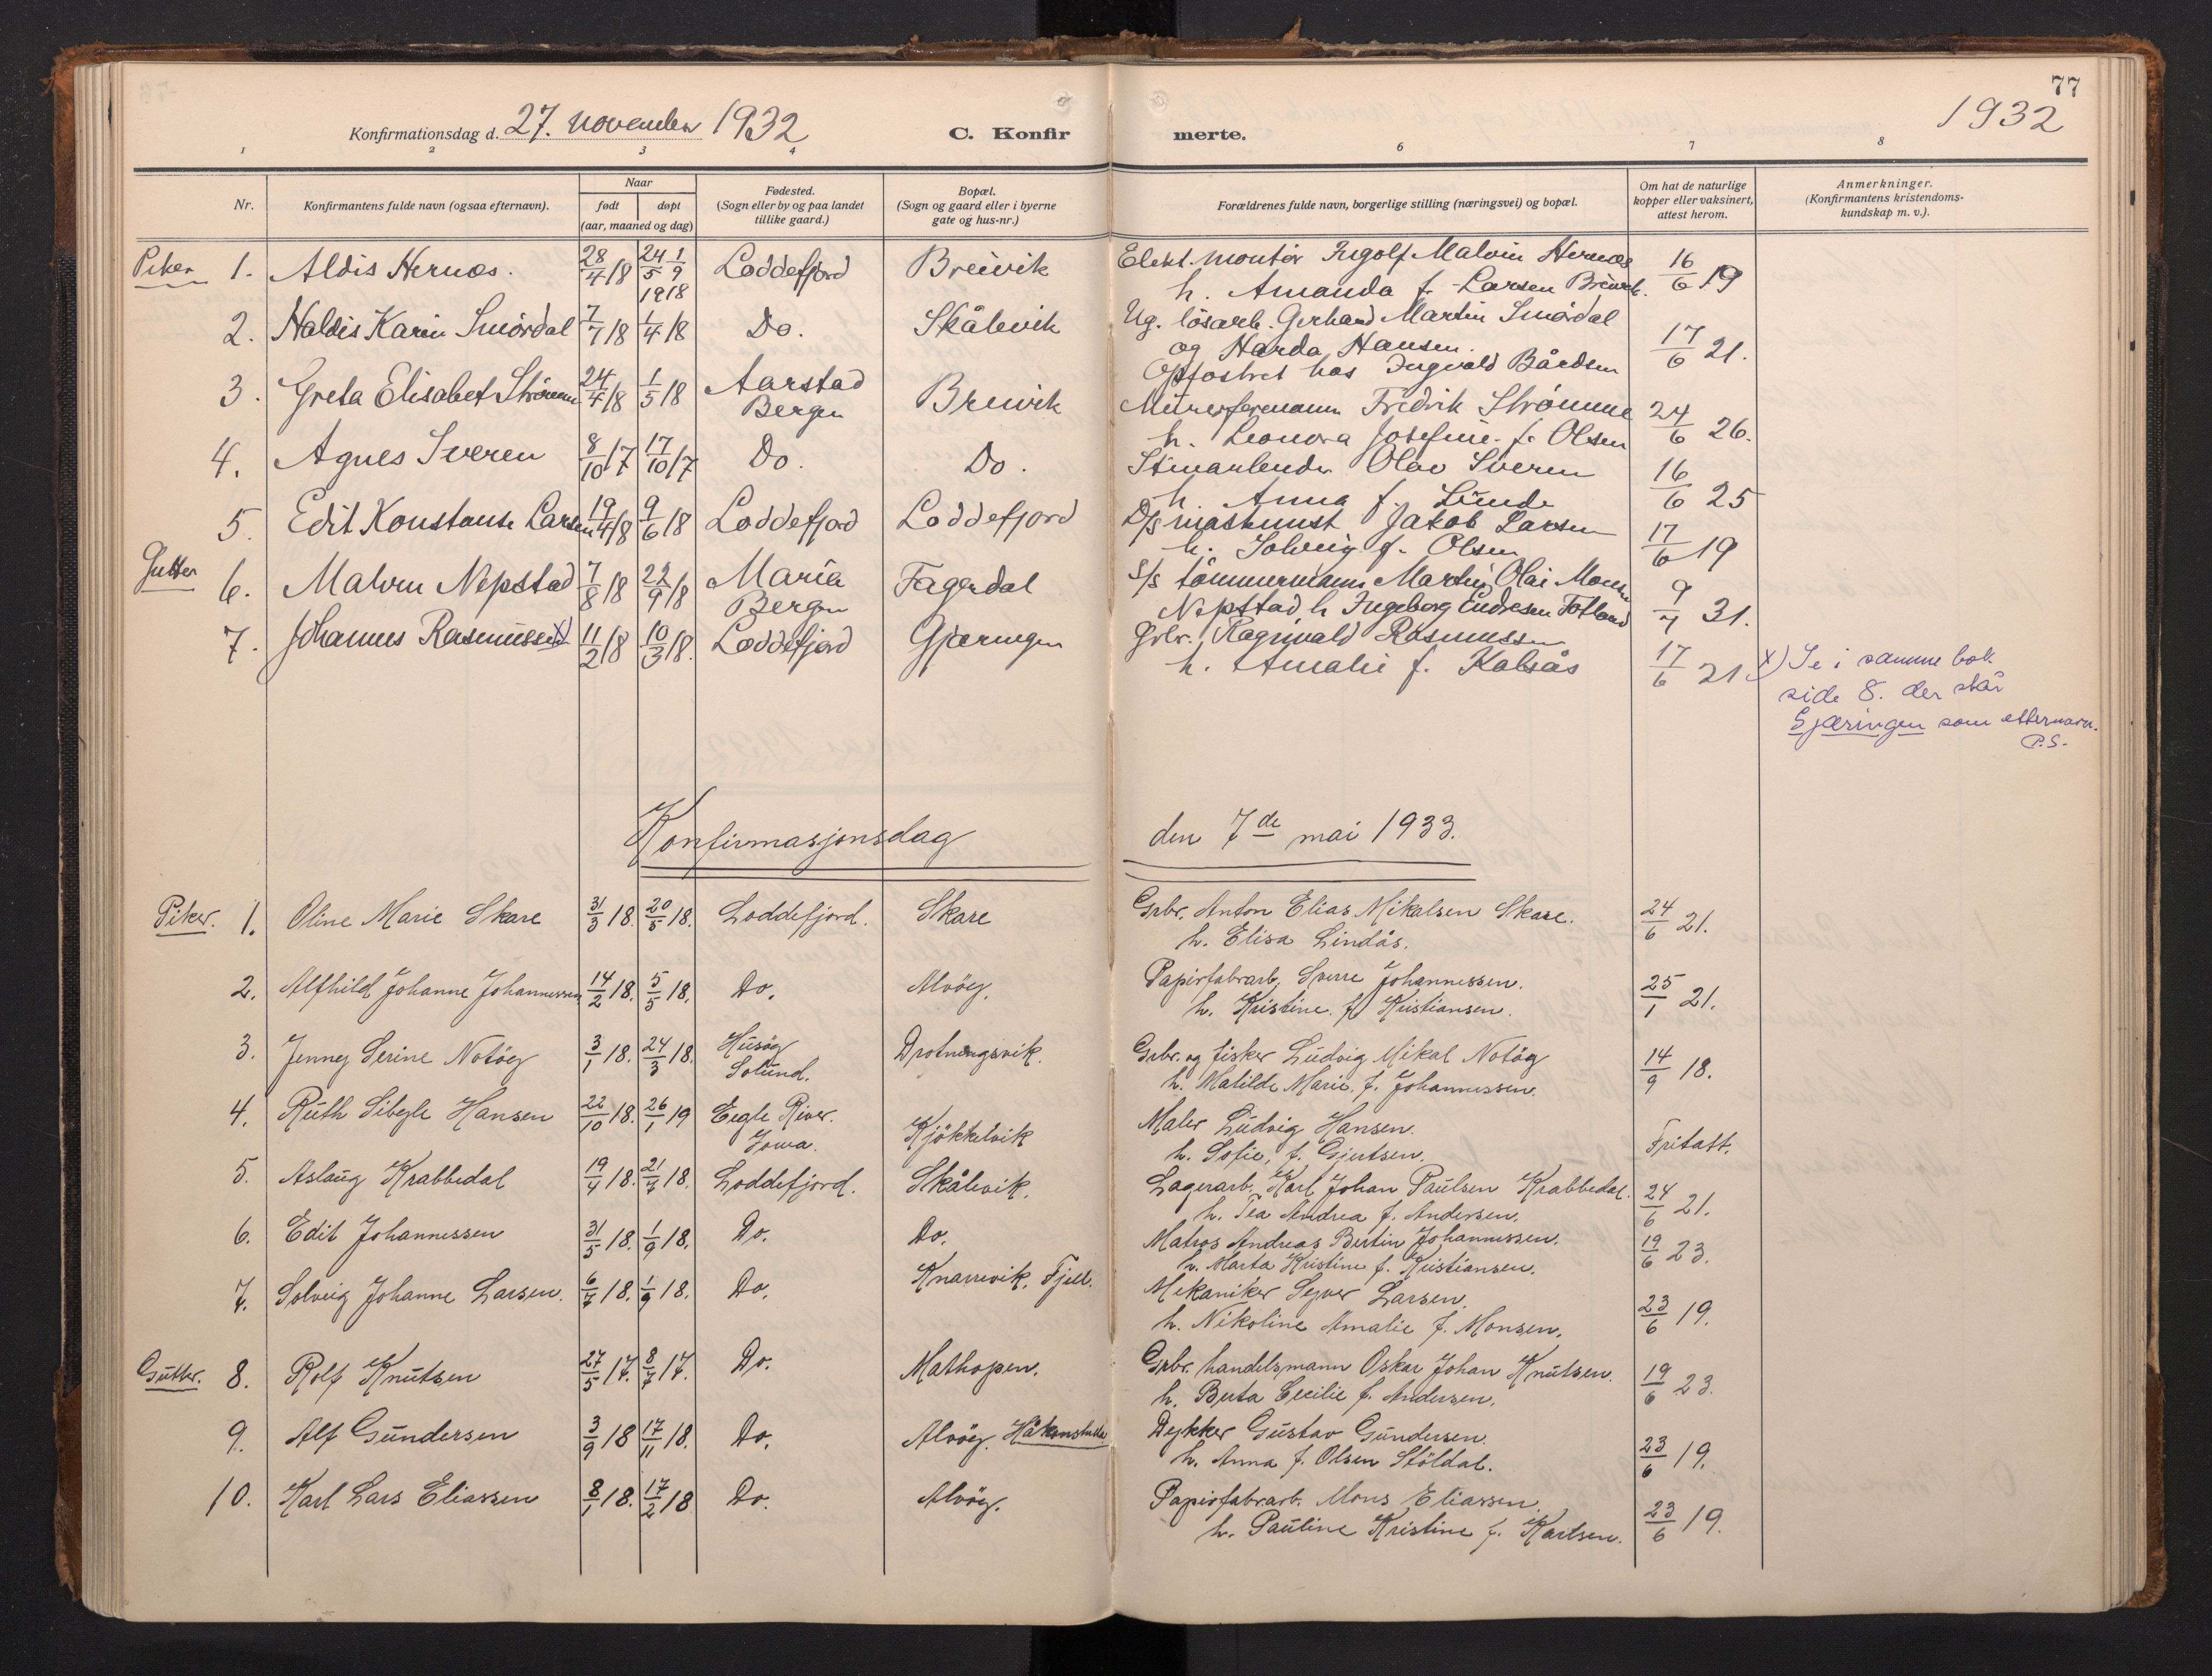 77
1932
Konfirmationsdag d. 27. november 1932
C. Konfir merte.
1 2 3 4 6 7 8
Nr.
Konfirmantens fulde navn (ogsaa efternavn).
Naar
født døpt
(aar, maaned og dag)
Fødested.
(Sogn eller by og paa landet
tillike gaard.)
Bopæl.
(Sogn og gaard eller i byerne
gate og hus-nr.)
Forældrenes fulde navn, borgerlige stilling (næringsvei) og bopæl.
Om hat de naturlige
kopper eller vaksinert,
attest herom.
Anmerkninger.
(Konfirmantens kristendoms-
kundskap m. v.).
Piker 1. Aldis Hernæs. 28/4 18 24/5 1/9 1918 Loddefjord Breivik Elekt. montör Ingolf Malvin Hernæs 16/6 19
h. Amanda f. Larsen Breivik.
2. Haldis Karin Smördal 7/7 18 1/4 18 Do. Skålevik Ug. lösarb. Gerhard Martin Smördal 17/6 21.
og Harda Hansen.
Opfostret hos Ingvald Bårdsen
3. Greta Elisabet Strömme 24/4 18 1/5 18 Aarstad Bergen Breivik Murerformann Fredrik Strömme 24/6 26.
h. Leonora Josefine f. Olsen
4. Agnes Sveren 8/10 17 17/10 17 Do. Do. Olav Sveren 16/6 25
h. Anna f. Lunde
5. Edit Konstanse Larsen 19/4 18 9/6 18 Loddefjord Loddefjord D/s maskinist Jakob Larsen 17/6 19
h. Solveig f. Olsen
Gutter 6. Malvin Nepstad 7/8 18 22/9 18 Maria Bergen Fagerdal S/s tömmermann Martin Olai Monsen 9/7 31.
Nepstad h Ingeborg Endresen Totland
7. Johannes Rasmussen x) 11/2 18 10/3 18. Loddefjord Gjæringen Grbr. Ragnvald Rasmussen 17/6 21
h. Amalie f. Kalsås
x) Se i samme bok
side 8. der står
Gjæringen som etternavn.
P.S.
Konfirmasjonsdag den 7de mai 1933.
Piker. 1. Oline Marie Skare 31/3 18. 20/5 18. Loddefjord. Skare Grbr. Anton Elias Mikalsen Skare. 24/6 21.
h. Elisa Lindås.
2. Alfhild Johanne Johannessen 14/2 18. 5/5 18. Do. Alvöy. Papirfabrarb. Sverre Johannessen. 25/1 21.
h. Kristine f. Kristiansen.
3. Jenney Serine Notöy 3/1 18. 24/3 18. Husöy Solund. Drotningsvik. Grbr. og fisker Ludvig Mikal Notöy 14/9 18.
h. Matilde Marie, f. Johannessen.
4. Ruth Sibyle Hansen 22/10 18. 26/1 19 Eegle River. Iowa. Kjökkelvik Maler Ludvig Hansen. Fritatt.
h. Sofie, f. Gjertsen.
5. Aslaug Krabbedal 19/4 18. 21/7 18. Loddefjord. Skålevik. Lagerarb. Karl Johan Paulsen Krabbedal. 24/6 21.
h. Tea Andrea f. Andersen.
6. Edit Johannessen 31/5 18. 1/9 18. Do. Do. Matros Andreas Bertin Johannessen. 19/6 23.
h. Marta Kristine f. Kristiansen.
7. Solveig Johanne Larsen. 6/7 18. 1/9 18. Do. Knarrevik, Fjell. Mekaniker Syver Larsen. 23/6 19.
h. Nikoline Amalie f. Monsen.
Gutter. 8. Rolf Knutsen 27/5 17. 8/7 17. Do. Mathopen. Grbr. handelsmann Oskar Johan Knutsen. 19/6 23.
h. Berta Cecilie f. Andersen.
9. Alf Gundersen 3/9 18 17/11 18. Do. Alvöy. Håkonshella Dykker Gustav Gundersen. 23/6 19.
h. Anna f. Olsen Stöldal.
10. Karl Lars Eliassen 8/1 18. 17/2 18 Do. Alvöy. Papirfabrarb. Mons Eliassen. 23/6 19.
h. Pauline Kristine f. Karlsen.